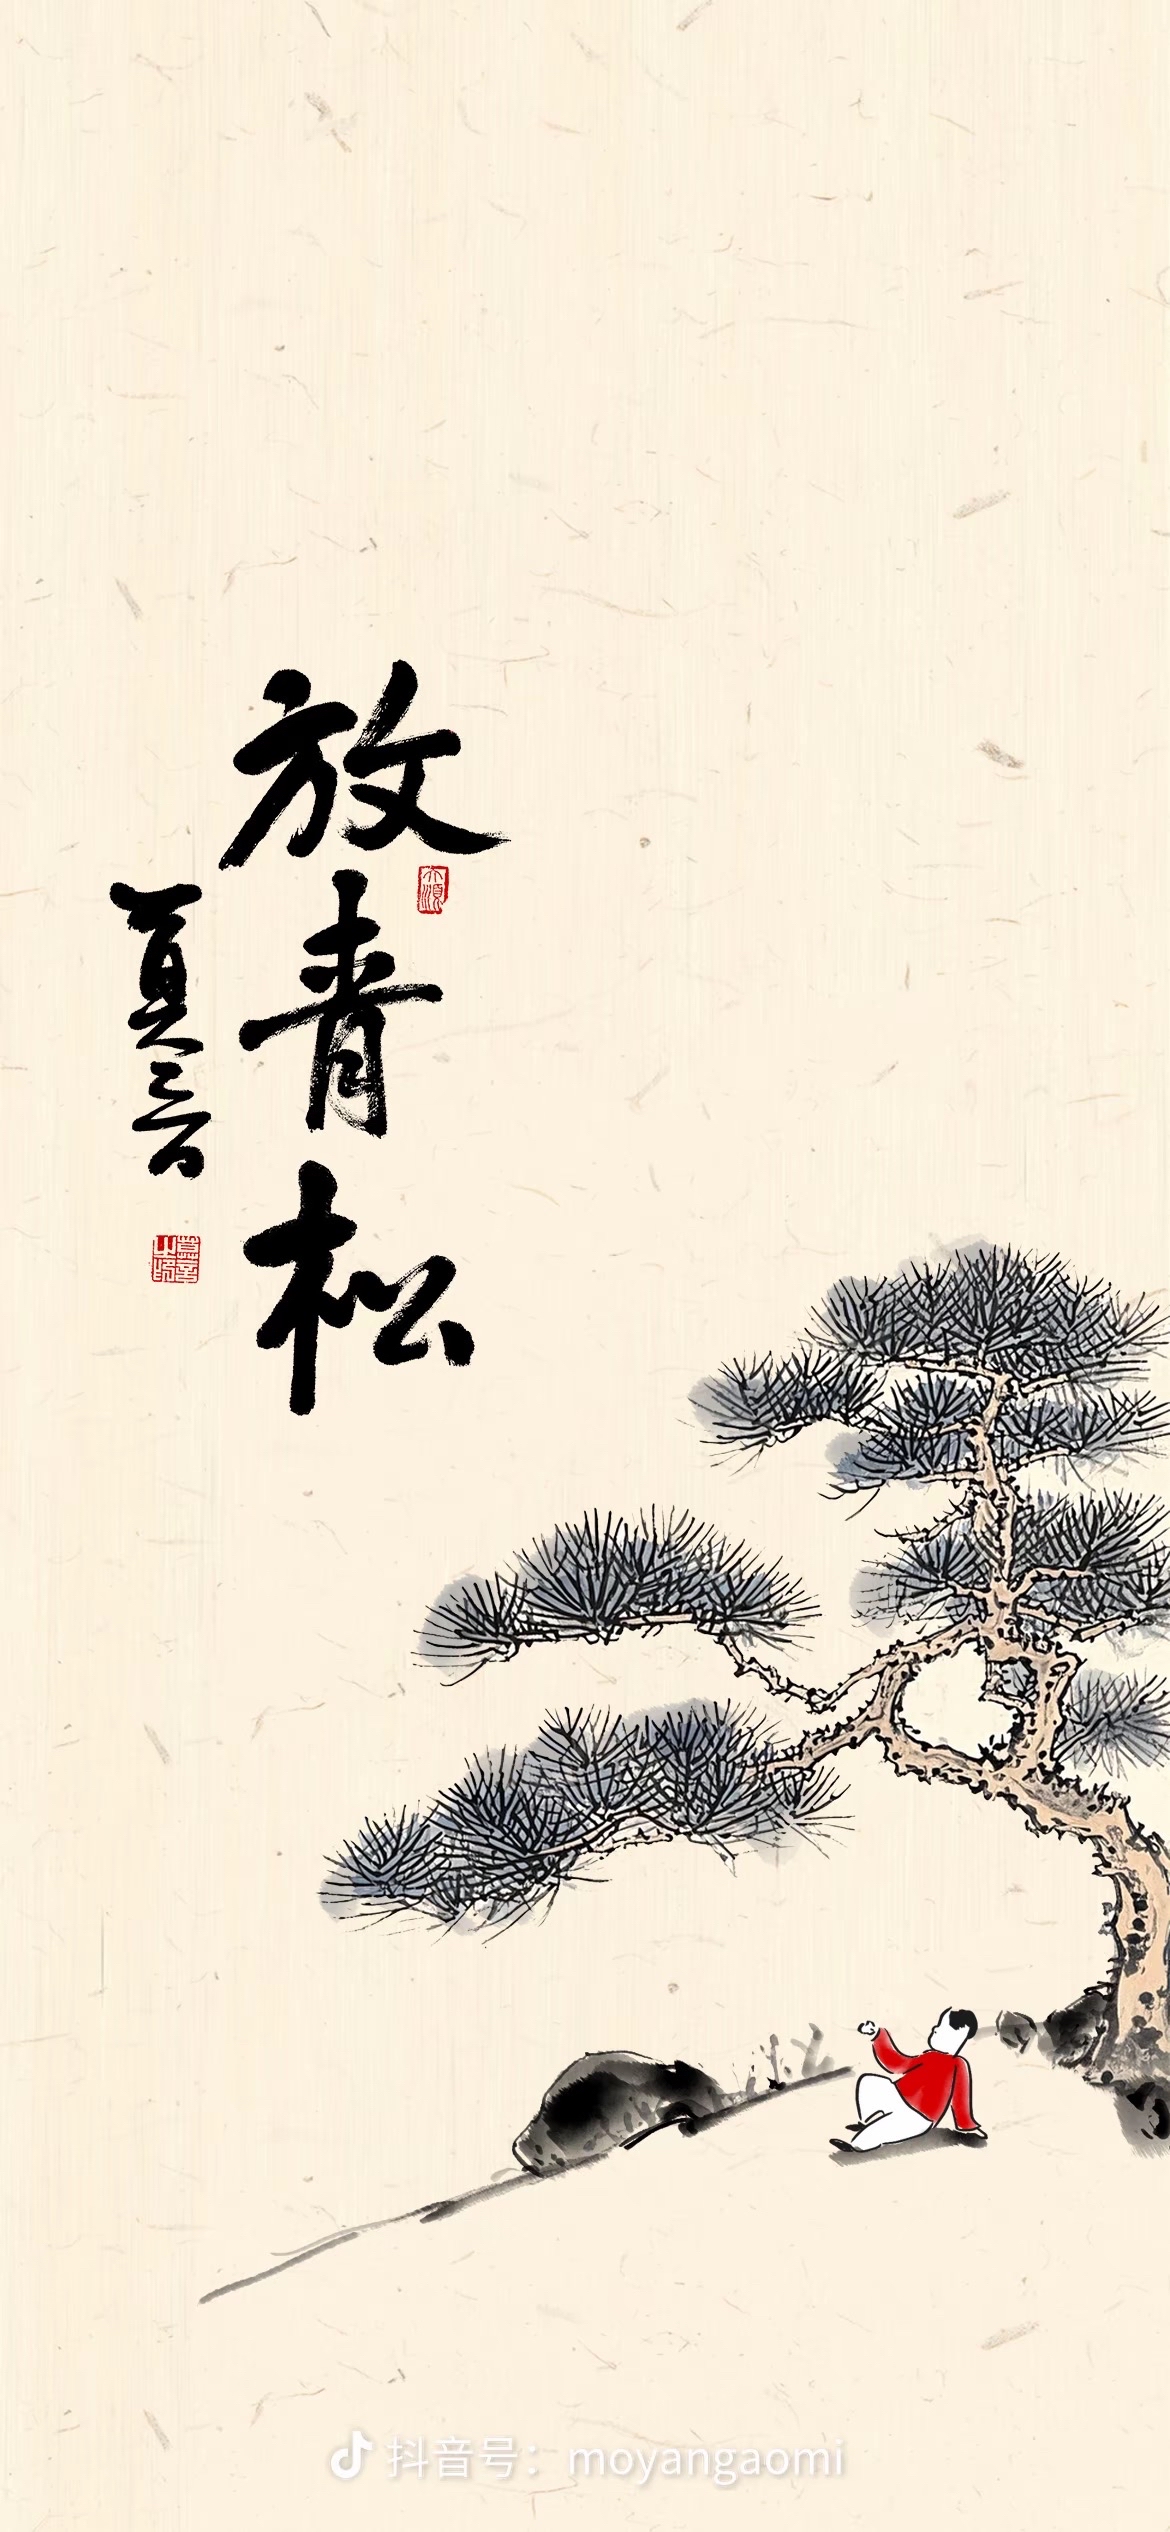 放青松
莫言
抖音号：moyangaomi